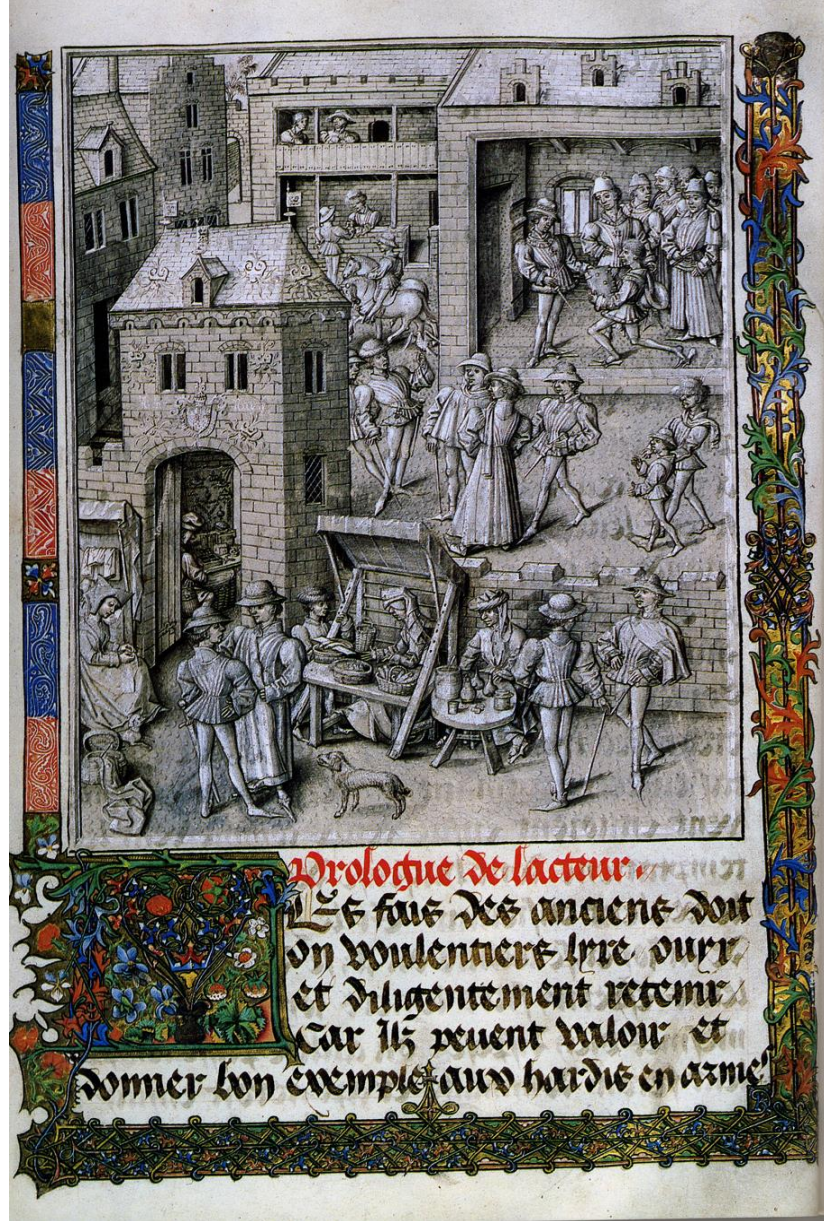 Prologue de lacteur.
Les fais des anciens doit
on voulentiers lyre ouyr
et diligentement retenir
Car Ilz peuent valoir et
donner bon exemple aux hardis en armes